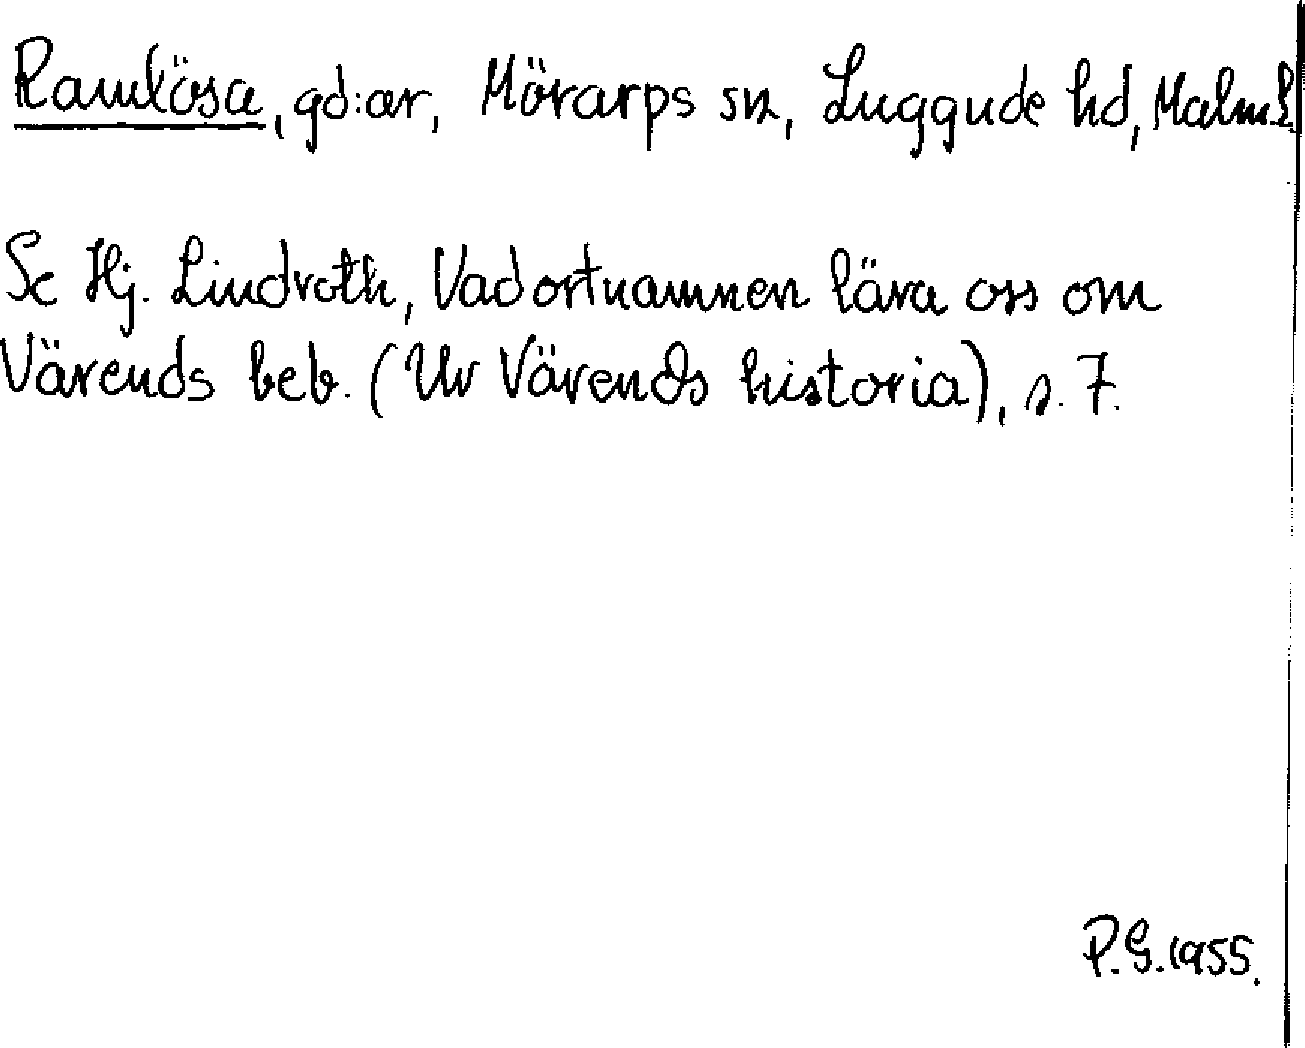 Ramlösa, gd:ar, Mörarps sn, Luggude hd, Malm.l.
Se Hj. Lindroth, Vad ortnamnen lära oss om
Värends beb. (Ur Värends historia), s. 7.
P.G.1955.